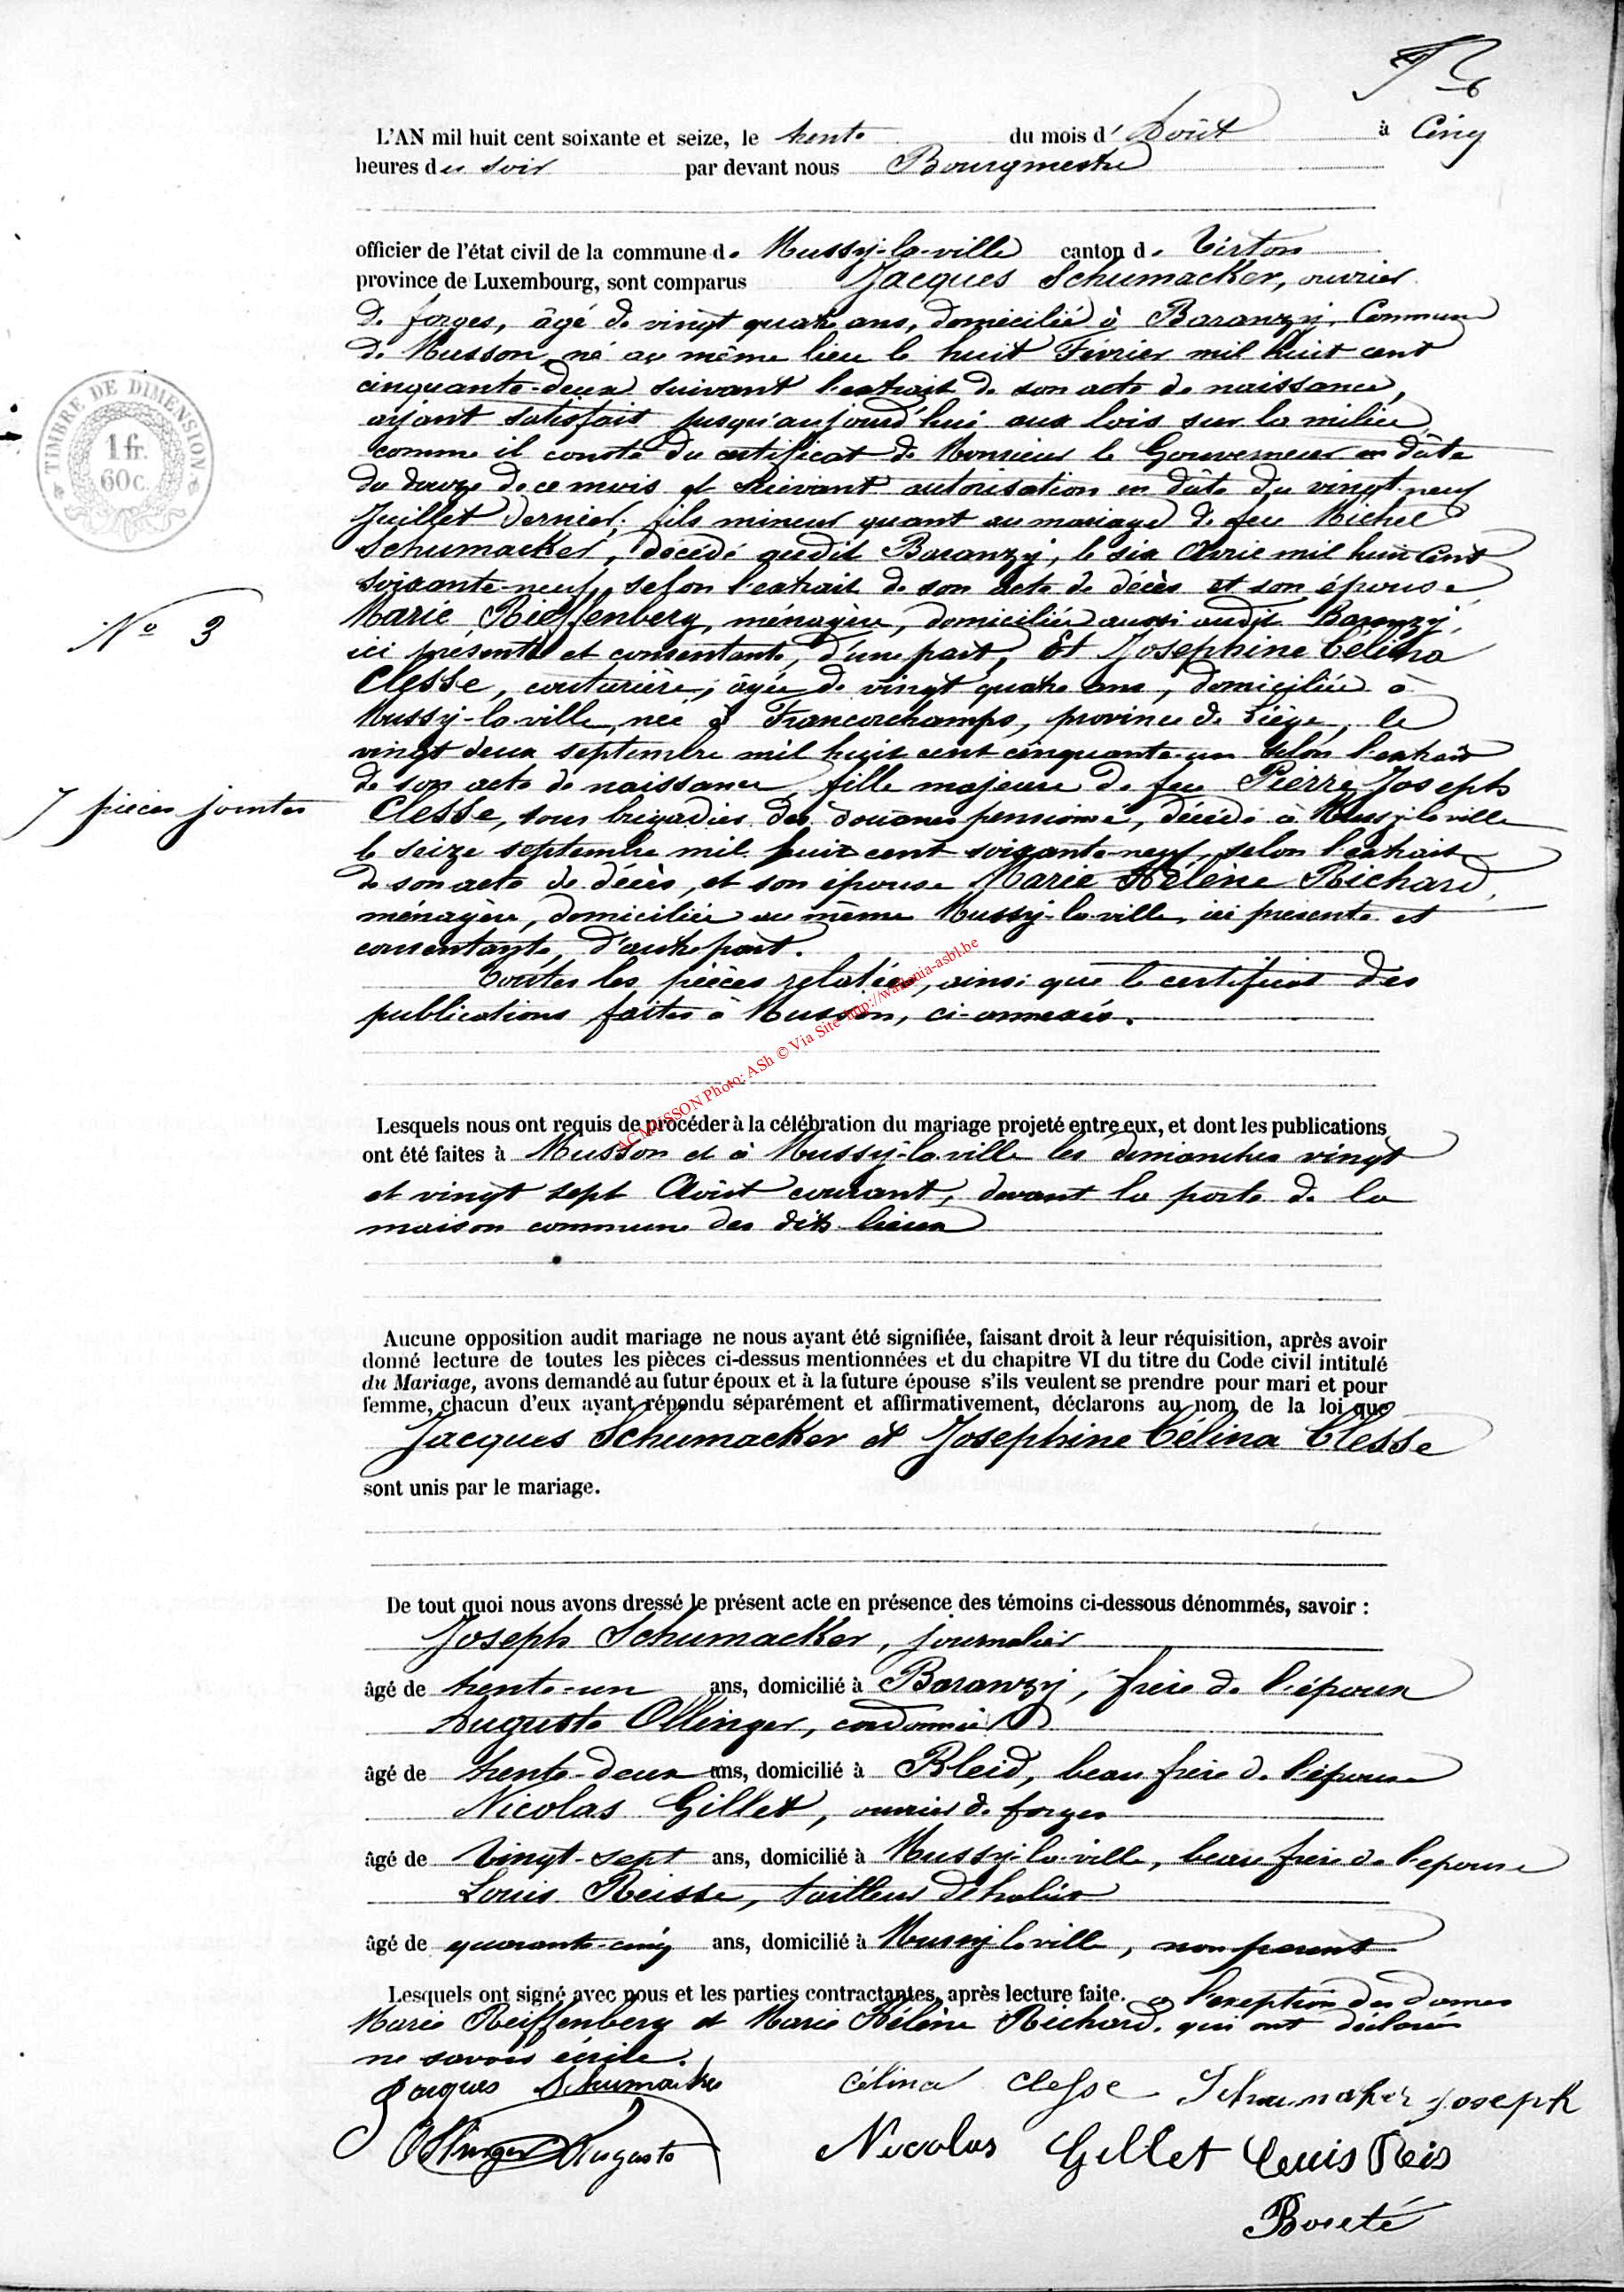 L'AN mil huit cent soixante et seize, le trente du mois d' Août à Cinq
heures du soir par devant nous Bourgmestre
officier de l'état civil de la commune de Mussy-la-ville canton de Virton
province de Luxembourg, sont comparus Jacques Schumacker, ouvrier
de forges, âgé de vingt quatre ans, domicilié à Baranzy, Commune
de Musson, né au même lieu le huit Février mil huit cent
cinquante-deux suivant l'extrait de son acte de naissance,
ayant satisfait jusqu'aujourd'hui aux lois sur la milice
comme il conste du certificat de Monsieur le Gouverneur en date
du douze de ce mois et suivant autorisation en date du vingt neuf
Juillet dernier; fils mineur quant au mariage de feu Michel
Schumacker, décédé audit Baranzy, le six Avril mil huit Cent
soixante-neuf, selon l'extrait de son acte de décès et son épouse
Marie Rieffenberg, ménagère, domiciliée aussi audit Baranzy,
ici présente et consentante, d'une part, Et Josephine Célina
Clesse, couturière, âgée de vingt quatre ans, domiciliée à
Mussy-la-ville, née à Francorchamps, province de Liège, le
vingt deux septembre mil huit cent cinquante-un selon l'extrait
de son acte de naissance, fille majeure de feu Pierre Joseph
Clesse, sous brigadier des douanes pensionné, décédé à Mussy-la-ville
le seize septembre mil huit cent soixante-neuf, selon l'extrait
de son acte de décès, et son épouse Marie Hélène Richard,
ménagère, domiciliée au même Mussy-la-ville, ici présente et
consentante, d'autre part.
Toutes les pièces relatées, ainsi que le certificat des
publications faites à Musson, ci-annexées.
TIMBRE DE DIMENSION
1 fr.
60 c.
N° 3
7 pièces jointes
ACMUSSON Photo: ASh © Via Site http://wallonia-asbl.be
Lesquels nous ont requis de procéder à la célébration du mariage projeté entre eux, et dont les publications
ont été faites à Musson et à Mussy-la-ville les dimanches vingt
et vingt sept Août courant, devant la porte de la
maison commune des dits lieux
Aucune opposition audit mariage ne nous ayant été signifiée, faisant droit à leur réquisition, après avoir
donné lecture de toutes les pièces ci-dessus mentionnées et du chapitre VI du titre du Code civil intitulé
du Mariage, avons demandé au futur époux et à la future épouse s'ils veulent se prendre pour mari et pour
femme, chacun d'eux ayant répondu séparément et affirmativement, déclarons au nom de la loi que
Jacques Schumacker et Josephine Célina Clesse
sont unis par le mariage.
De tout quoi nous avons dressé le présent acte en présence des témoins ci-dessous dénommés, savoir :
Joseph Schumacker, journalier
âgé de trente-un ans, domicilié à Baranzy, frère de l'époux
Auguste Ollinger, cordonnier
âgé de trente-deux ans, domicilié à Bleid, beau frère de l'épouse
Nicolas Gillet, ouvrier de forges
âgé de Vingt-sept ans, domicilié à Mussy-la-ville, beau frère de l'épouse
Louis Reisse, tailleur d'habits
âgé de quarante-cinq ans, domicilié à Mussy la ville, non parent
Lesquels ont signé avec nous et les parties contractantes, après lecture faite. à l'exeption des dames
Marie Reiffenberg et Marie Hélène Richard, qui ont déclaré
ne savoir écrire.
Jacques Schumacker Célina Clesse Schumaker Joseph
Ollinger Auguste Nicolas Gillet Louis Reis